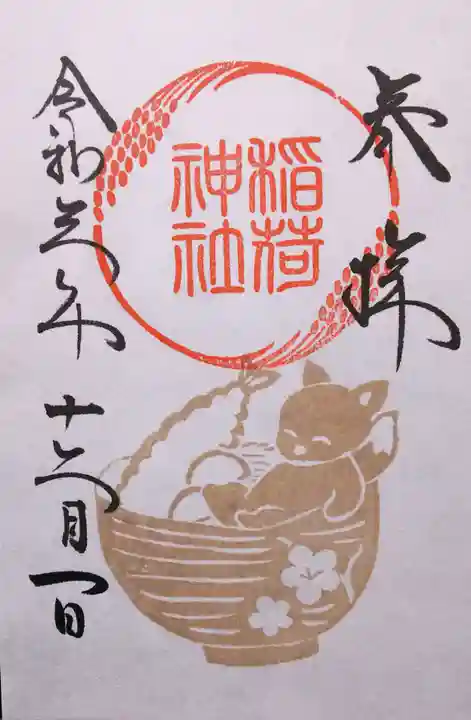 奉拝
稲荷
神社
令和元年十二月一日